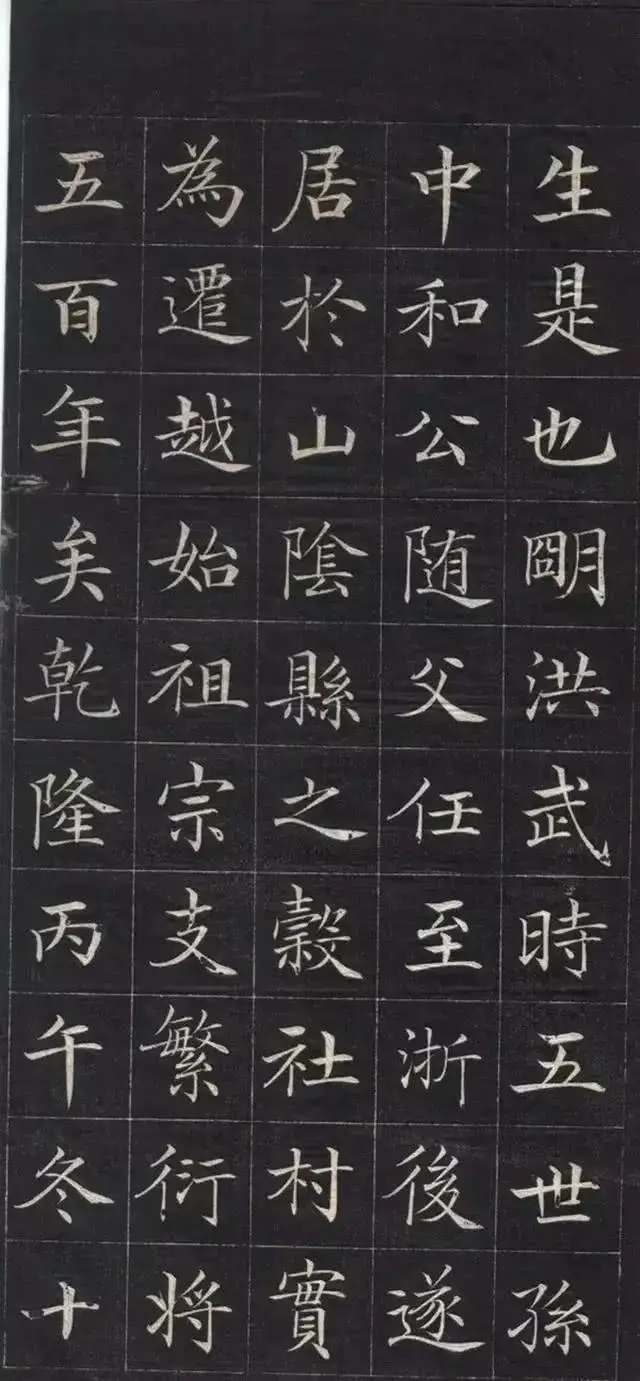 生是也朙洪武時五世孫
中和公随父任至浙後遂
居於山陰縣之榖社村實
為遷越始祖宗支繁衍将
五百年矣乾隆丙午冬十